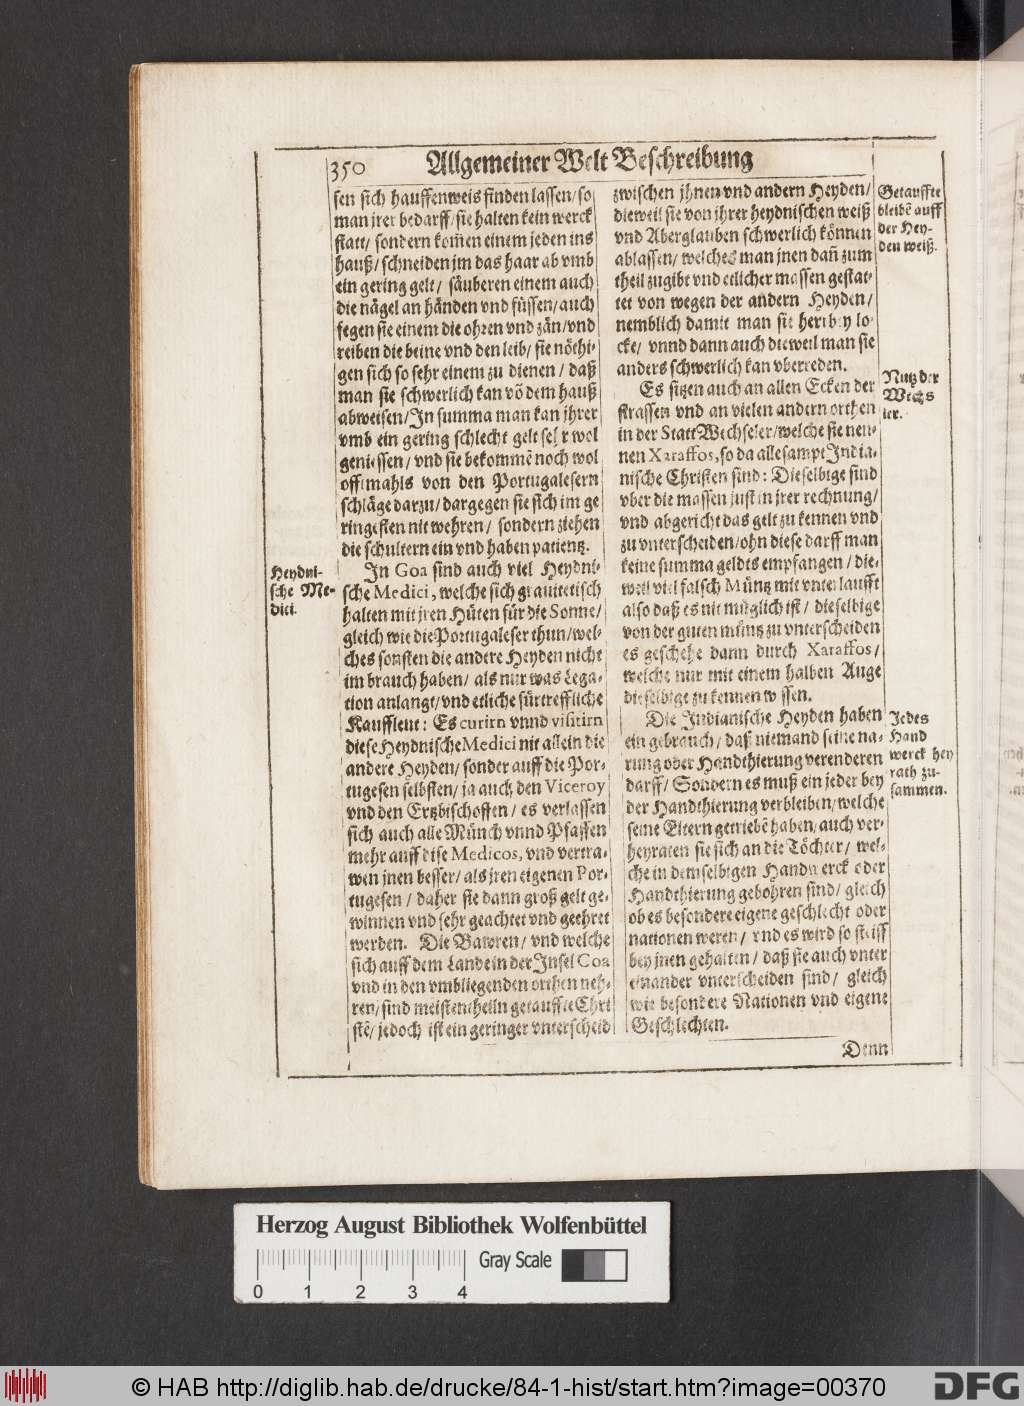 350 Allgemeiner Welt Beschreibung
sen sich hauffenweis finden lassen/so
man jrer bedarff/sie halten kein werck
statt/ sondern kom̃en einem jeden ins
hauß/schneiden jm das haar ab vmb
ein gering gelt/ säuberen einem auch
die nägel an händen vnd füssen/auch
fegen sie einem die ohren vnd zän/vnd
reiben die beine vnd den leib/ sie nöthi-
gen sich so sehr einem zu dienen/ daß
man sie schwerlich kan võ dem hauß
abweisen/In summa man kan jhrer
vmb ein gering schlecht gelt sehr wol
geniessen/ vnd sie bekommẽ noch wol
offtmahls von den Portugalesern
schläge darzu/dargegen sie sich im ge
ringesten nit wehren/ sondern ziehen
die schultern ein vnd haben patientz.
Heydni-
sche Me-
dici.
In Goa sind auch viel Heydni-
sche Medici, welche sich grauitetisch
halten mit jren Hüten für die Sonne/
gleich wie die Portugaleser thun/wel-
ches sonsten die andere Heyden nicht
im brauch haben/ als nur was Lega-
tion anlangt/vnd etliche fürtreffliche
Kauffleut: Es curirn vnnd visitirn
diese Heydnische Medici nit allein die
andere Heyden/ sonder auff die Por-
tugesen selbsten/ ja auch den Viceroy
vnd den Ertzbischoffen/ es verlassen
sich auch alle Münch vnnd Pfaffen
mehr auff dise Medicos, vnd vertra-
wen jnen besser/ als jren eigenen Por-
tugesen/ daher sie dann groß gelt ge-
winnen vnd sehr geachtet vnd geehret
werden. Die Bawren/ vnd welche
sich auff dem Lande in der Insel Goa
vnd in den vmbliegenden orthen neh-
ren/sind meistentheiln getauffte Chri
stẽ/jedoch ist ein geringer vnterscheid
zwischen jhnen vnd andern Heyden/
dieweil sie von jhrer heydnischen weiß
vnd Aberglauben schwerlich können
ablassen/ welches man jnen dañ zum
theil zugibt vnd etlicher massen gestat-
tet von wegen der andern Heyden/
nemblich damit man sie herbey lo-
cke/ vnnd dann auch dieweil man sie
anders schwerlich kan vberreden.
Getauffte
bleibẽ auff
der Hey-
den weiß.
Es sitzen auch an allen Ecken der
strassen vnd an vielen andern orthen
in der Statt Wechseler/welche sie nen-
nen Xaraffos, so da allesampt India-
nische Christen sind: Dieselbige sind
vber die massen just in jrer rechnung/
vnd abgericht das gelt zu kennen vnd
zu vnterscheiden/ohn diese darff man
keine summa geldts empfangen/ die-
weil viel falsch Müntz mit vnterlaufft
also daß es nit müglich ist/ dieselbige
von der guten müntz zu vnterscheiden
es geschehe dann durch Xaraffos/
welche nur mit einem halben Auge
dieselbige zu kennen wissen.
Nutz der
Wechs
ler.
Die Indianische Heyden haben
ein gebrauch/ daß niemand seine na-
rung oder Handthierung verenderen
darff/ Sondern es muß ein jeder bey
der Handthierung verbleiben/welche
seine Eltern getriebẽ haben/auch ver-
heyraten sie sich an die Töchter/ wel-
che in demselbigen Handwerck oder
Handthierung gebohren sind/ gleich
ob es besondere eigene geschlecht oder
nationen weren/ vnd es wird so steiff
bey jnen gehalten/ daß sie auch vnter
einander vnterscheiden sind/ gleich
wie besondere Nationen vnd eigene
Geschlechten.
Jedes
Hand
werck hey
rath zu-
sammen.
Denn
Herzog August Bibliothek Wolfenbüttel
Gray Scale
0 1 2 3 4
© HAB http://diglib.hab.de/drucke/84-1-hist/start.htm?image=00370
DFG